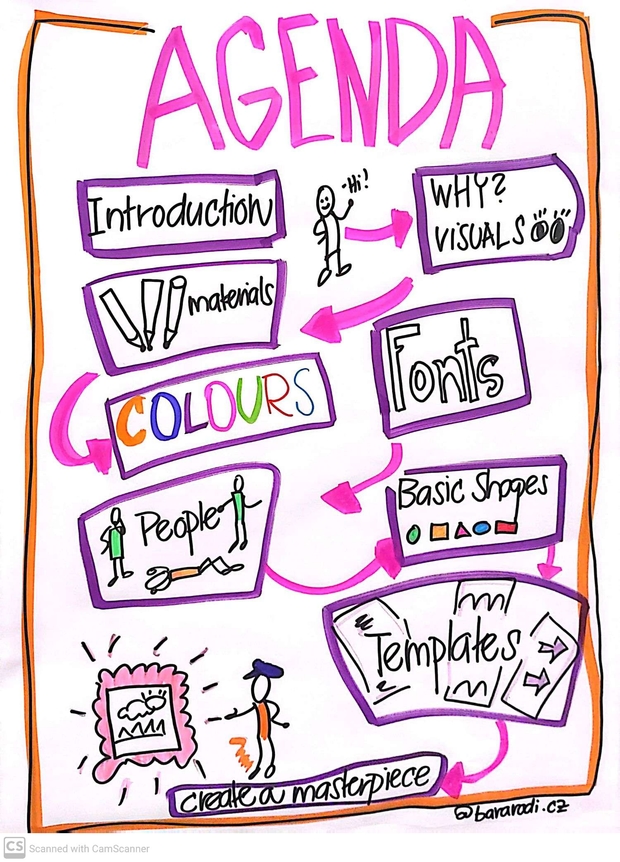 AGENDA
Introduction
-Hi!
WHY?
VISUALS
materials
COLOURS
Fonts
People
Basic Shapes
Templates
create a masterpiece
@bararodi.cz
CS Scanned with CamScanner